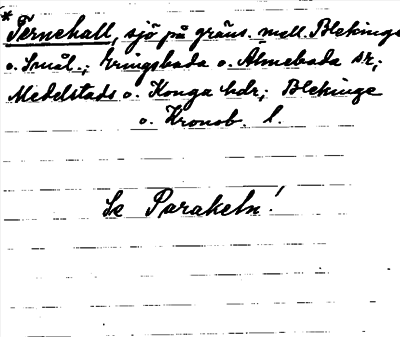 * Ternehall, sjö på gräns. mell. Blekinge
o. Smål.; Eringsboda o. Almeboda sr;
Medelstads o. Konga hdr; Blekinge
o. Kronob. l.
Se Parakeln!